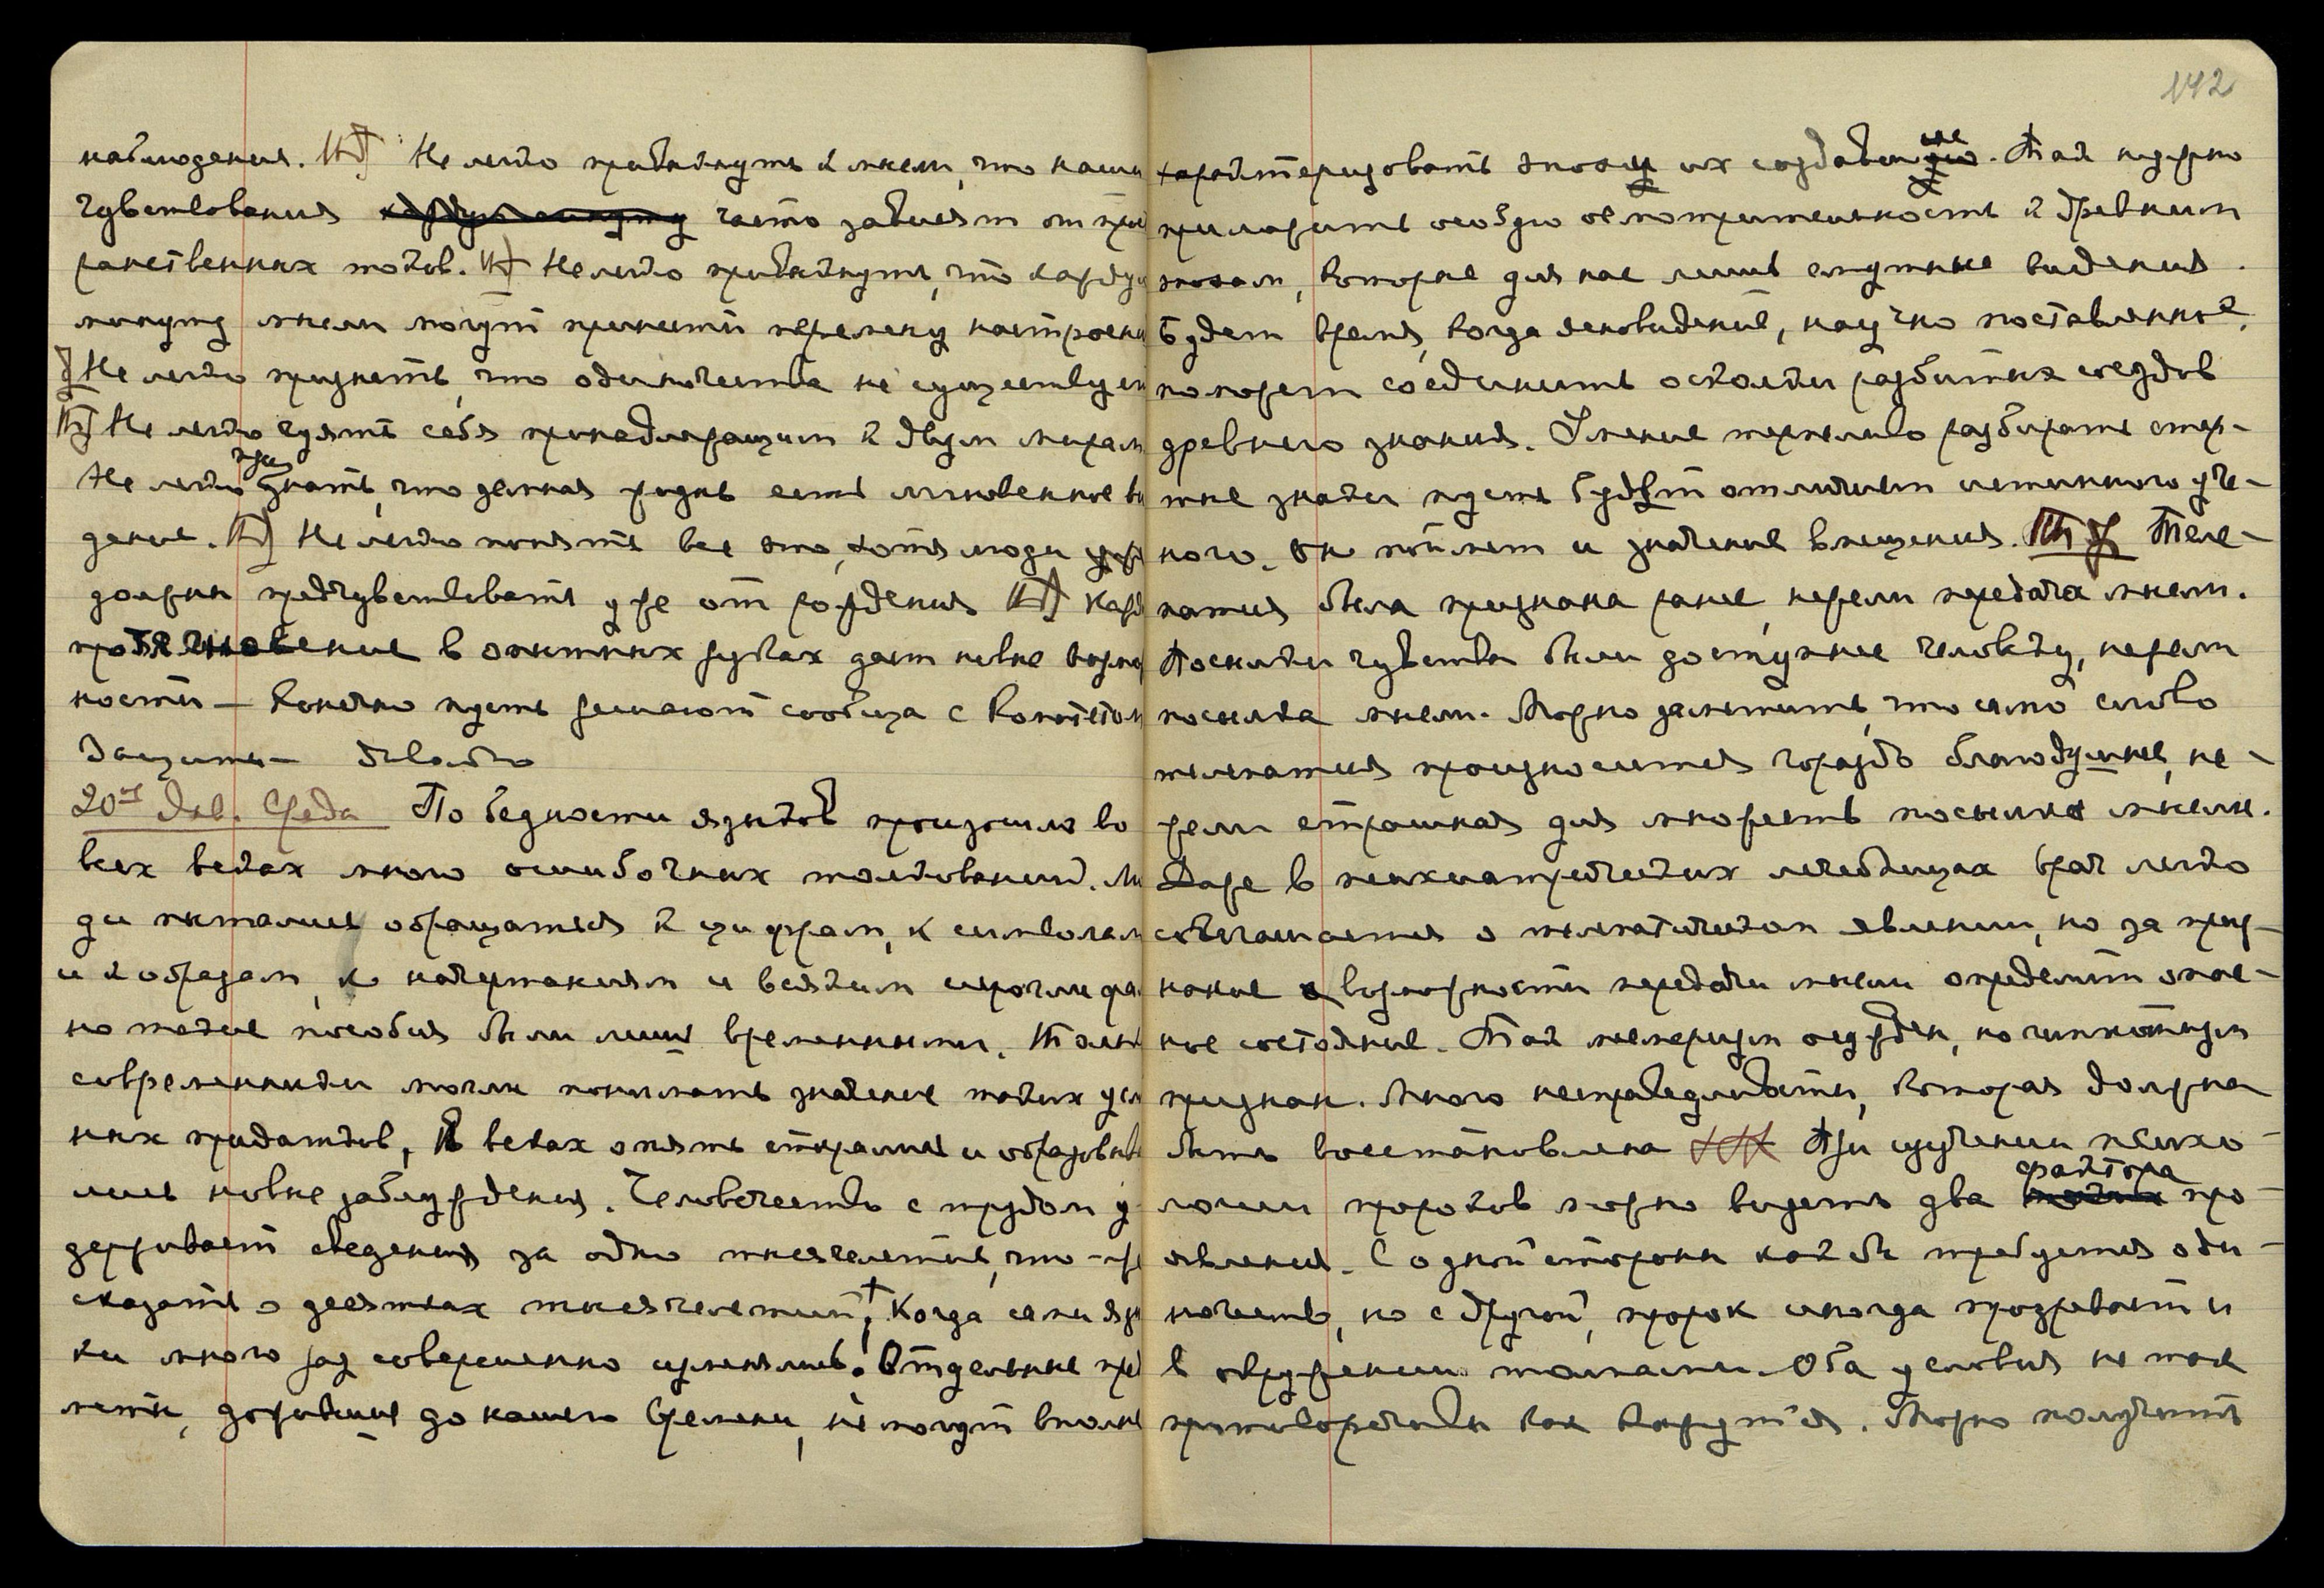 наблюдения. Не легко привыкнуть к мысли, что наши
чувствования часто зависят от про
странственных токов. Не легко привыкнуть, что кажду
минуту мысли могут принести перемену настроени
Не легко признать, что одиночества не существует
Не легко чуять себя принадлежащим к двум мирам
Не легко знать, что земная жизнь есть мгновенное ви
дение. Не легко понять все это, хотя люди
должны предчувствовать уже от рождения кажд
в опытных руках дает новые возмож
ности — Конечно пусть решают сообща с Комитетом
Защиты — Довольно
20ое Янв. Среда По бедности языков произошло во
всех веках много ошибочных толкований. Лю
ди пытались обращаться к цифрам, к символам
и к образам, к начертаниям и всяким иероглифа
но такие пособия были лишь временными. Только
современники могли понимать значение таких услов
ных придатков, в веках опять стирались и образовыва
лись новые заблуждения. Человечество с трудом у
держивает сведения за одно тысячелетие, что-же
сказать о десятках тысячелетий, Когда сами язы
ки много раз совершенно изменялись. Отдельные пред
меты, дошедшие до нашего времени, не могут вполне
142
характеризовать эпоху их создавшую. Так нужно
приложить особую осмотрительность к древним
эпохам, которые для нас лишь смутные видения.
Будет время, когда ясновидение, научно поставленное,
поможет соединить осколки разбитых сосудов
древнего знания. Умение терпеливо разбирать стер-
тые знаки пусть будет отличием истинного уче-
ного. Он поймет и значение вмещения. Теле-
патия была признана ранее, нежели передача мысли.
Посылки чувства были доступнее человеку, нежели
посылка мысли. Можно заметить, что само слово
телепатия произносится гораздо благодушнее, не-
жели страшная для множеств посылка мысли.
Даже в психиатрических лечебницах врач легко
соглашается о телепатическом явлении, но за приз-
нание возможности передачи мысли определит опас-
ное состояние. Так месмеризм осужден, но гипнотизм
признан. Много несправедливости, которая должна
быть восстановлена При изучении психо-
логии пророков можно видеть два фактора про-
явления. С одной стороны как бы требуется оди-
ночество, но с другой, пророк иногда прозревает и
в окружении толпами. Оба условия не так
противоречивы как кажутся. Можно получать